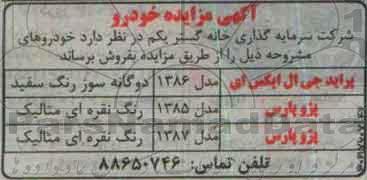 آگهی مزایده خودرو
شرکت سرمایه گذاری خانه گستر یکم در نظر دارد خودروهای
مشروحه ذیل را از طریق مزایده بفروش برساند
پراید جی ال ایکس ای مدل ۱۳۸۶ دوگانه سوز رنگ سفید
پژو پارس مدل ۱۳۸۵ رنگ نقره ای متالیک
پژو پارس مدل ۱۳۸۷ رنگ نقره ای متالیک
تلفن تماس: ۸۸۶۵۰۷۴۶